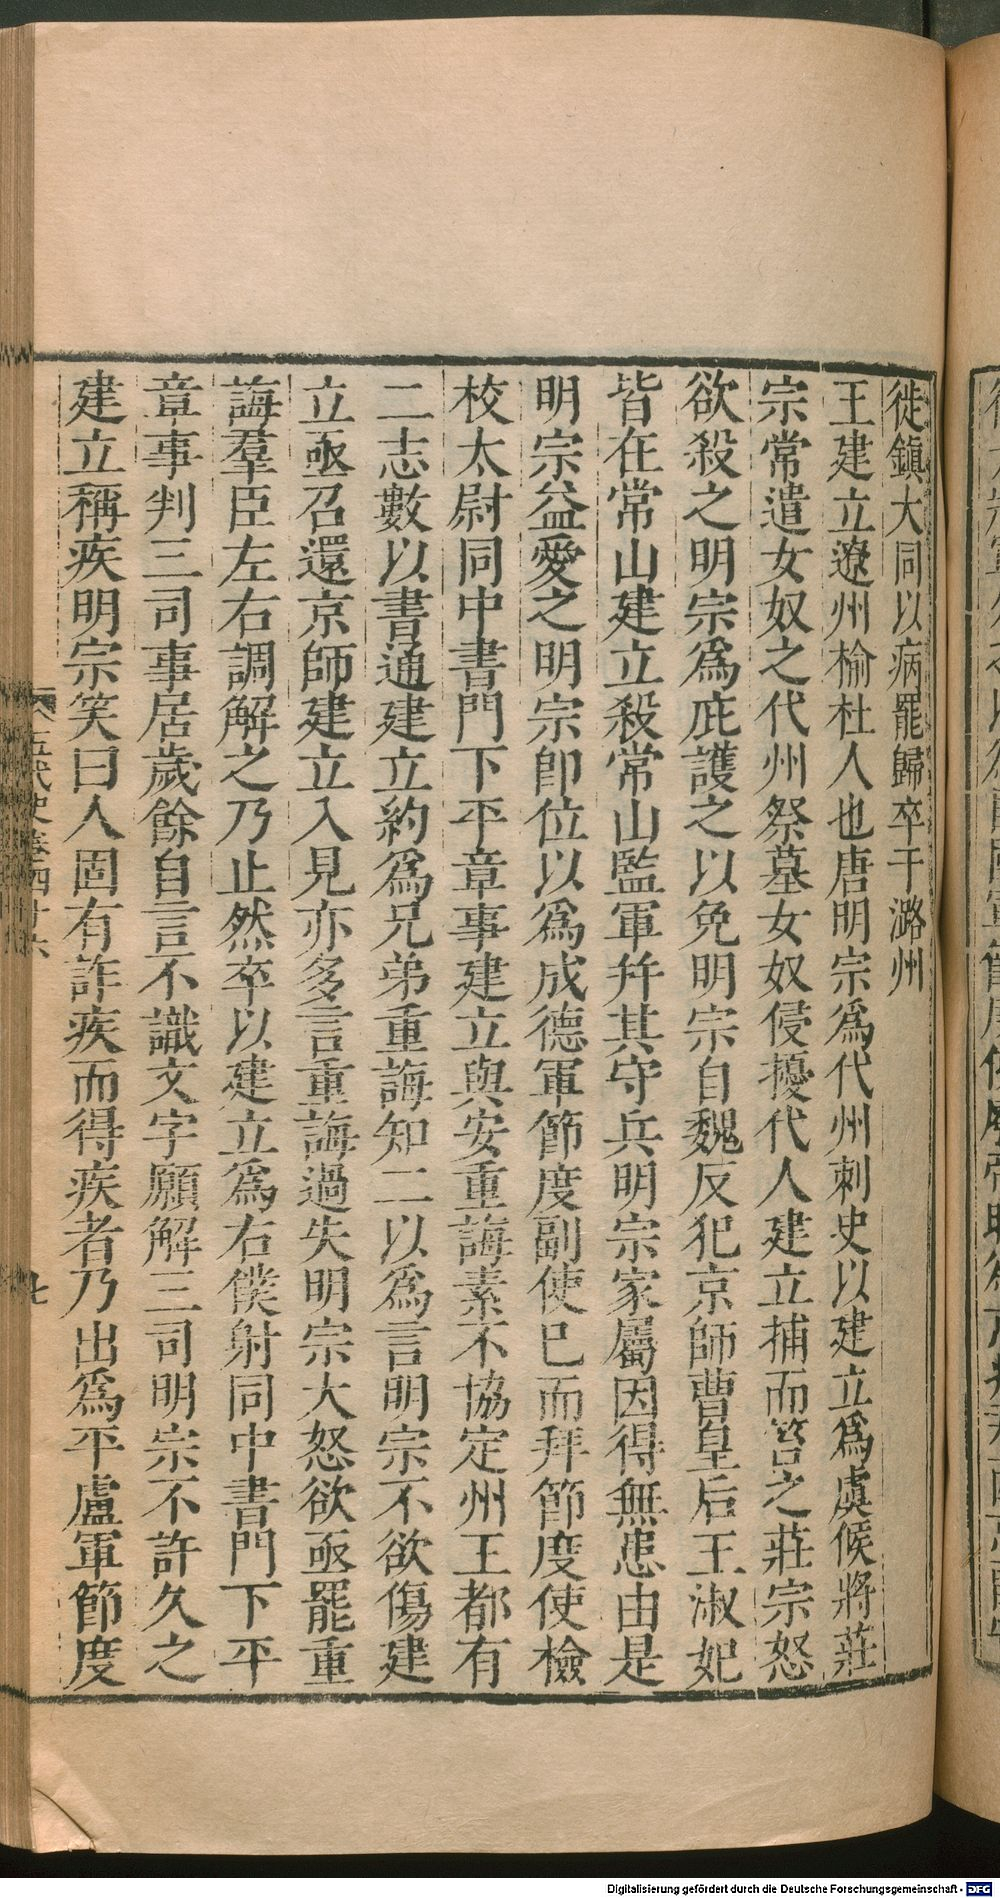 徙鎭大同以病罷歸卒于潞州
王建立遼州榆社人也唐明宗爲代州刺史以建立爲虞候將莊
宗常遣女奴之代州祭墓女奴侵擾代人建立捕而笞之莊宗怒
欲殺之明宗爲庇護之以免明宗自魏反犯京師曹皇后王淑妃
皆在常山建立殺常山監軍幷其守兵明宗家屬因得無患由是
明宗益愛之明宗卽位以爲成德軍節度副使已而拜節度使檢
校太尉同中書門下平章事建立與安重誨素不協定州王都有
二志數以書通建立約爲兄弟重誨知二以爲言明宗不欲傷建
立亟召還京師建立入見亦多言重誨過失明宗大怒欲亟罷重
誨羣臣左右調解之乃止然卒以建立爲右僕射同中書門下平
章事判三司事居歲餘自言不識文字願解三司明宗不許久之
建立稱疾明宗笑曰人固有詐疾而得疾者乃出爲平盧軍節度
五代史卷四十六
七
Digitalisierung gefördert durch die Deutsche Forschungsgemeinschaft - DFG